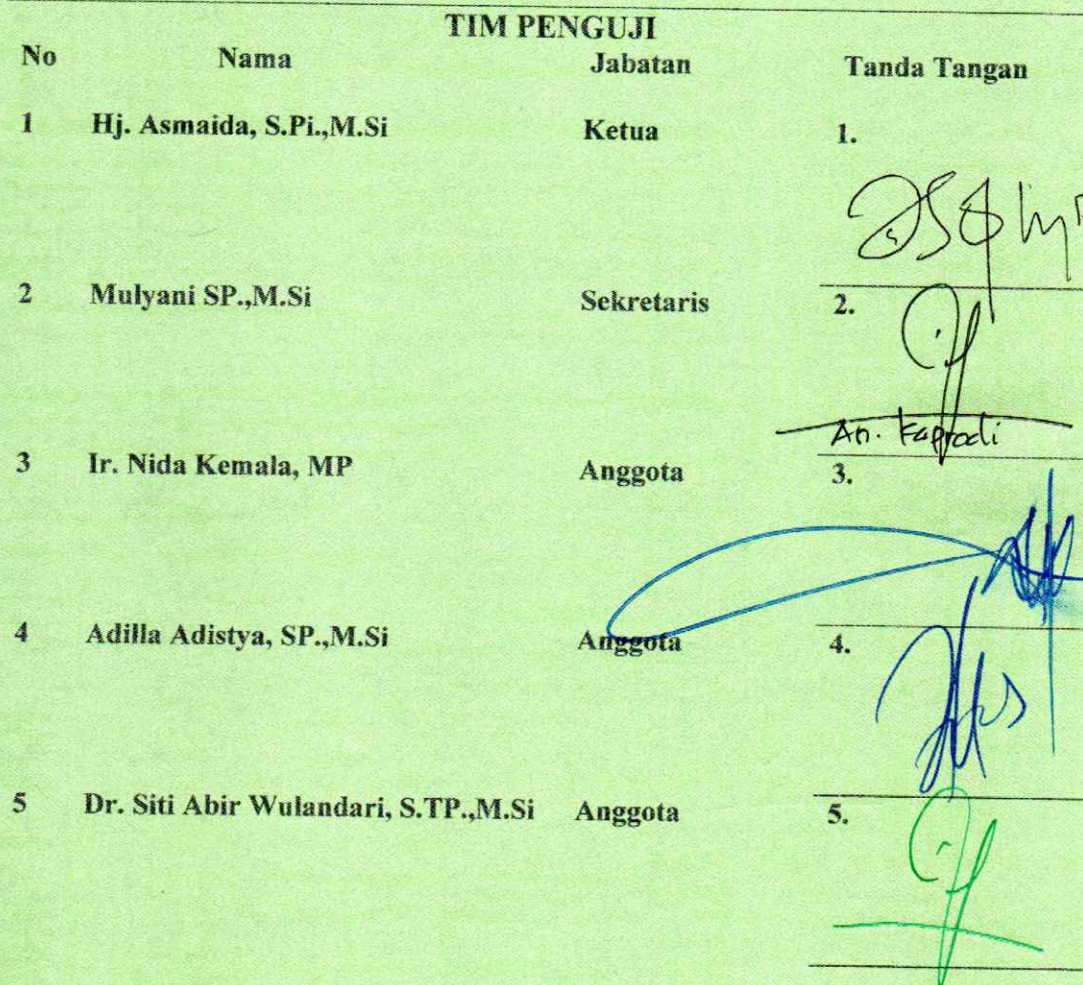 TIM PENGUJI
No Nama Jabatan Tanda Tangan
1 Hj. Asmaida, S.Pi.,M.Si Ketua 1.
2 Mulyani SP.,M.Si Sekretaris 2.
An. Kaprodi
3 Ir. Nida Kemala, MP Anggota 3.
4 Adilla Adistya, SP.,M.Si Anggota 4.
5 Dr. Siti Abir Wulandari, S.TP.,M.Si Anggota 5.